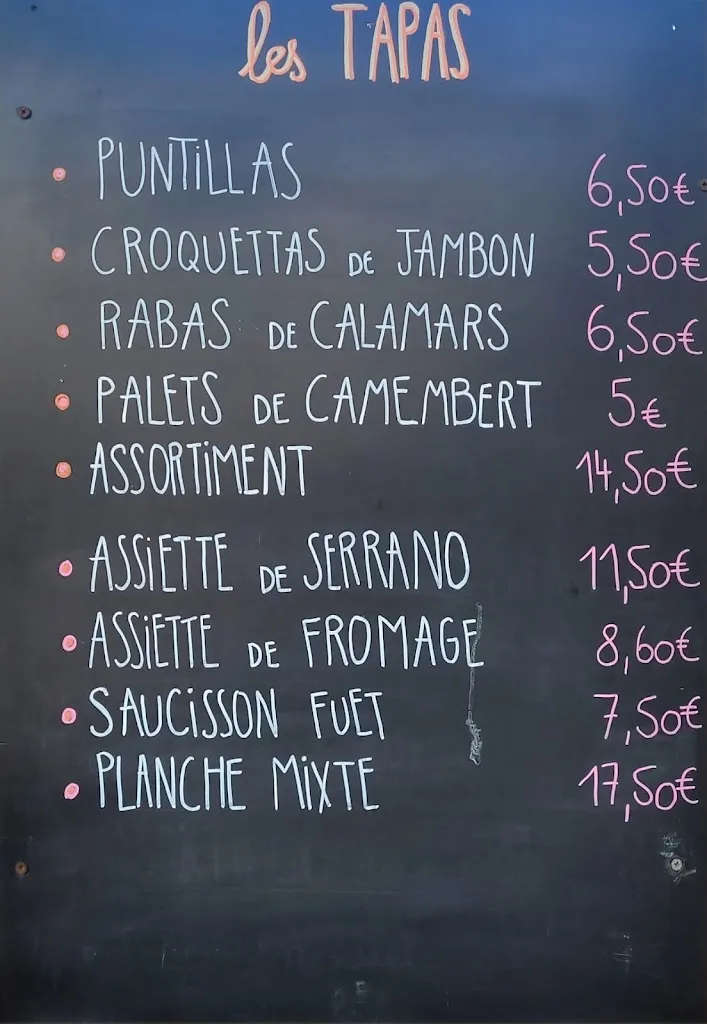 les TAPAS
PUNTiLLAS 6,50€
CROQUETTAS DE JAMBON 5,50€
RABAS DE CALAMARS 6,50€
PALETS DE CAMEMBERT 5€
ASSORTiMENT 14,50€
ASSiETTE DE SERRANO 11,50€
ASSiETTE DE FROMAGE 8,60€
SAUCiSSON FUET 7,50€
PLANCHE MiXTE 17,50€